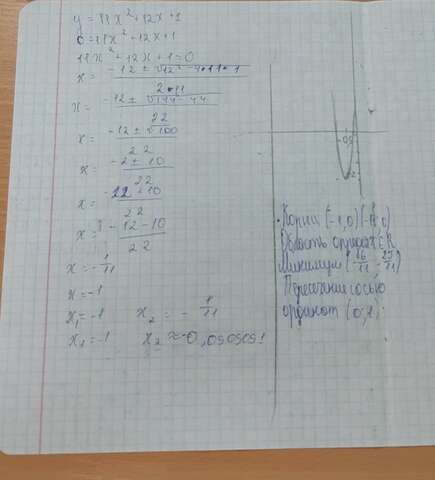 y = 11x² + 12x + 1
0 = 11x² + 12x + 1
11x² + 12x + 1 = 0
x = (-12 ± √12² - 4·11·1) / 2·11
x = (-12 ± √144 - 44) / 22
x = (-12 ± √100) / 22
x = (-2 ± 10) / 22
x = (-22 + 10) / 22
x = (-12 - 10) / 22
x = -1/11
x = -1
x₁ = -1 x₂ = -1/11
x₁ = -1 x₂ ≈ -0,0909091
-0,5
-2
Корни (-1,0)
Область
Минимум
Пересечение с осью
ординат (0,1)